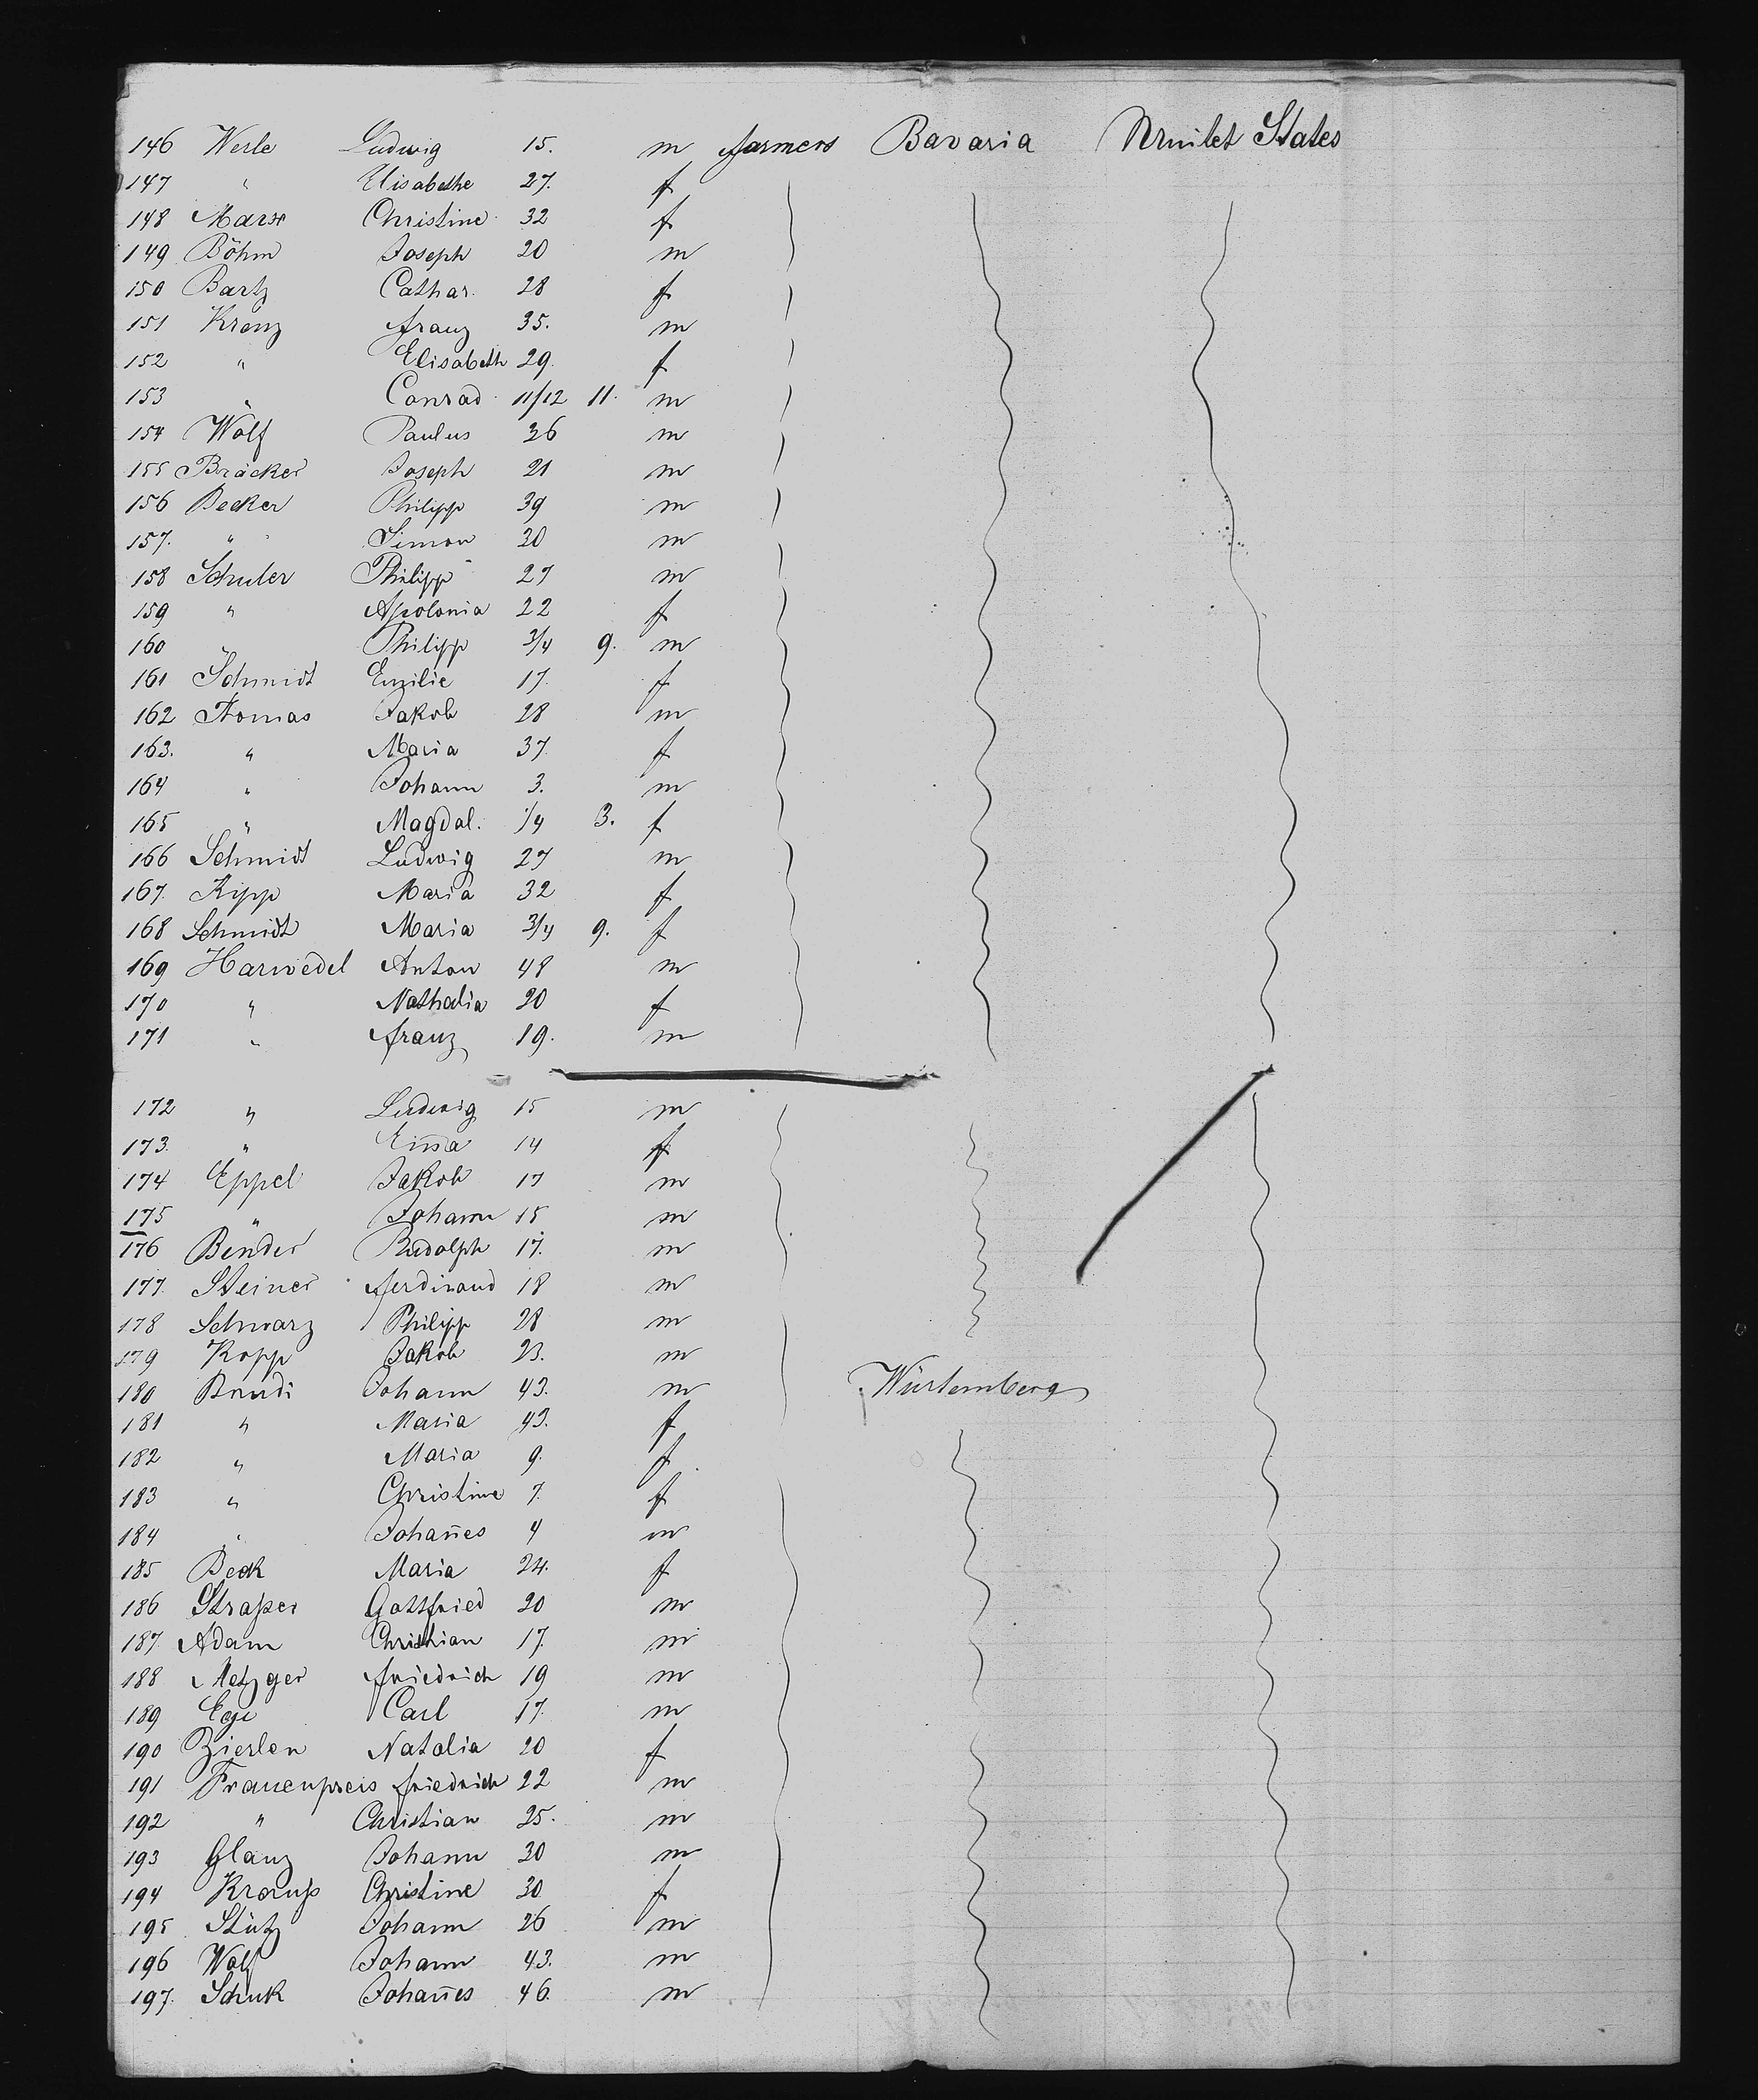 146 Werle Ludwig 15. m farmers Bavaria Unitet States
147 " Elisabethe 27. f
148 Marx Christine 32 f
149 Böhm Joseph 20 m
150 Bartz Cathar. 28 f
151 Krenz Franz 35. m
152 " Elisabeth 29. f
153 " Conrad 11/12 11. m
154 Wolf Paulus 36 m
155 Bräcker Joseph 21 m
156 Becker Philipp 39 m
157. " Simon 20 m
158 Schuler Philipp 27 m
159 " Apolonia 22 f
160 " Philipp 3/4 9. m
161 Schmidt Emilie 17. f
162 Thomas Jakob 28 m
163. " Maria 37. f
164 " Johann 3. m
165 " Magdal. 1/4 3. f
166 Schmidt Ludwig 27 m
167. Kipp Maria 32 f
168 Schmidt Maria 3/4 9. f
169 Harwedel Anton 48 m
170 " Nathalia 20 f
171 " Franz 19. m
172 " Ludwig 15 m
173. " 14 f
174 Eppel Jakob 17 m
175 " Johann 15 m
176 Bender Rudolph 17. m
177. Steiner Ferdinand 18 m
178 Schwarz Philipp 28 m
179 Kopp Jakob 23. m
180 Brudi Johann 43. m Würtemberg
181 " Maria 43. f
182 " Maria 9. f
183 " Christine 7. f
184 " Johan̄es 4 m
185 Beck Maria 24. f
186 Straßer Gottfried 20 m
187. Adam Christian 17. m
188 Metzger Friedrich 19 m
189 Ege Carl 17. m
190 Zierlen Natalia 20 f
191 Frauenpreis Friedrich 22 m
192 " Christian 25. m
193 Glanz Johann 30 m
194 Krauß Christine 30 f
195 Stütz Johann 26 m
196 Wolf Johann 43. m
197. Schuk Johan̄es 46. m